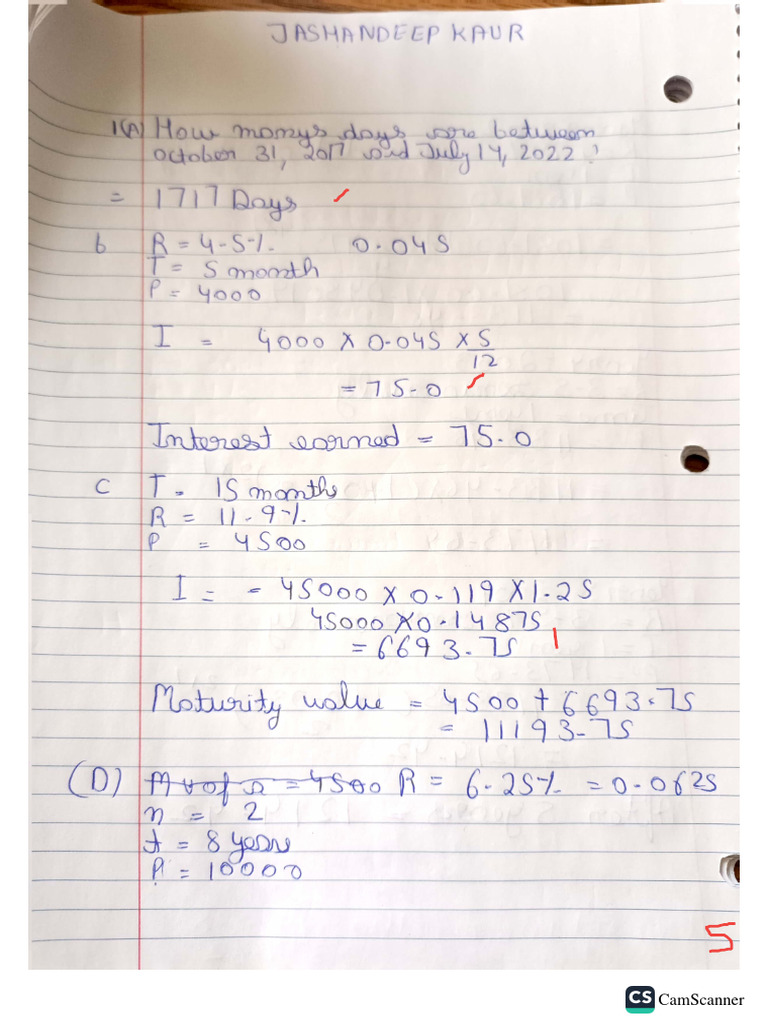 JASHANDEEP KAUR
1(A) How manys days are between
October 31, 2017 and July 14, 2022?
= 1717 Days
b R = 4.5%. 0.045
T = 5 month
P = 4000
I = 4000 X 0.045 X 5/12
= 75.0
Interest earned = 75.0
C T = 15 months
R = 11.9%.
P = 4500
I = - 45000 X 0.119 X 1.25
45000 X 0.14875
= 6693.75 1
Maturity value = 4500 + 6693.75
= 11193.75
(D) R = 6.25% = 0.0625
n = 2
t = 8 years
P = 10000
5
CS CamScanner